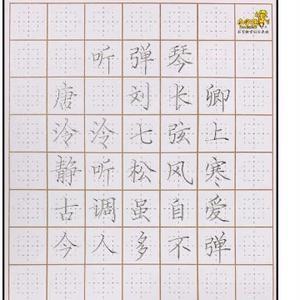 听弹琴
唐 刘长卿
泠泠七弦上
静听松风寒
古调虽自爱
今人多不弹